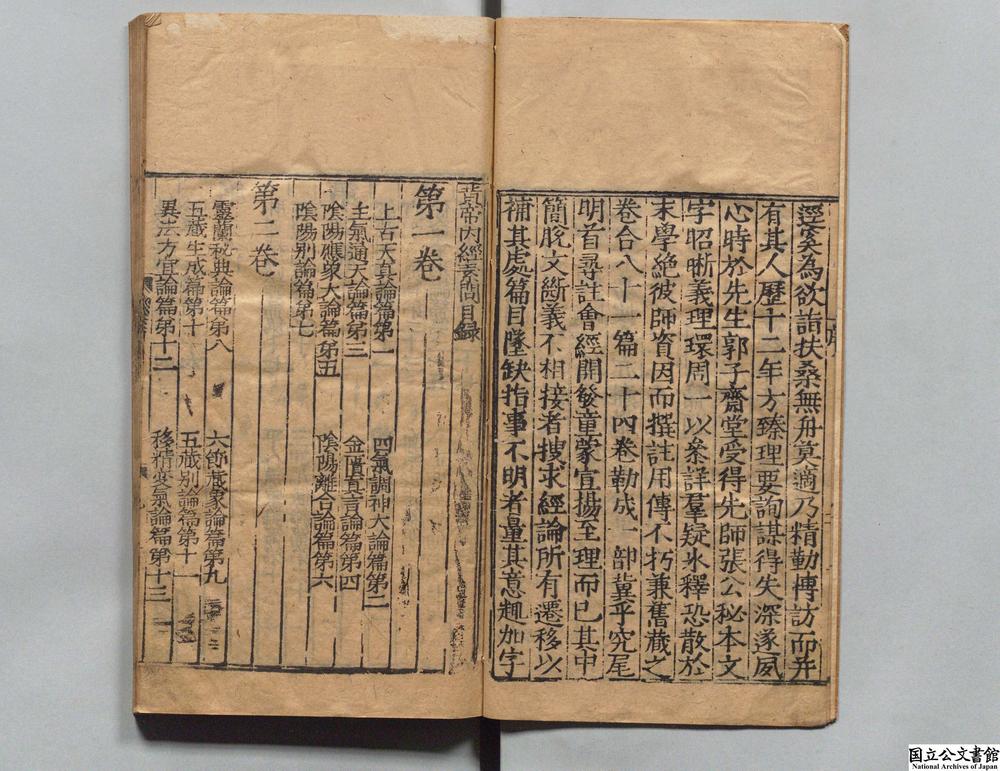 逕奚為欲詣扶桑無舟莫適乃精勤博訪而并
有其人歷十二年方臻理要詢謀得失深遂夙
心時於先生郭子齋堂受得先師張公秘本文
字昭晰義理環周一以參詳羣疑氷釋恐散於
末學絕彼師資因而撰註用傳不朽兼舊藏之
卷合八十一篇二十四卷勒成一部冀乎究尾
明首尋註會經開發童蒙宣揚至理而已其中
簡脫文斷義不相接者搜求經論所有遷移以
補其處篇目墜缺指事不明者量其意趣加字
序
黃帝內經素問目録
第一卷
上古天真論篇第一 四氣調神大論篇第二
生氣通天論篇第三 金匱真言論篇第四
陰陽應象大論篇第五 陰陽離合論篇第六
陰陽別論篇第七
第二卷
靈蘭秘典論篇第八 六節藏象論篇第九
五藏生成篇第十 五藏別論篇第十一
異法方宜論篇第十二 移精変氣論篇第十三
国立公文書館
National Archives of Japan